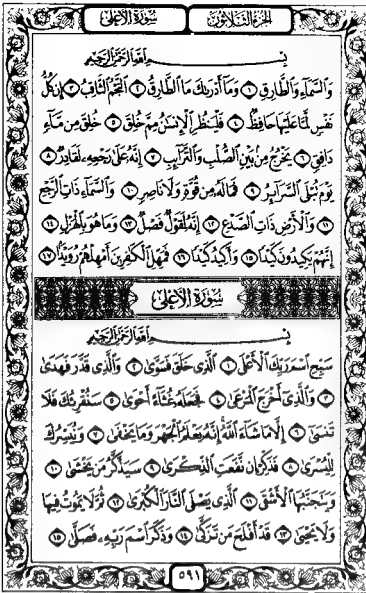 سُورَةُ الأَعْلَىٰ
الجُزْءُ الثَّلَاثُونَ
بِسْمِ اللَّهِ الرَّحْمَٰنِ الرَّحِيمِ
وَالسَّمَاءِ وَالطَّارِقِ ١ وَمَا أَدْرَاكَ مَا الطَّارِقُ ٢ النَّجْمُ الثَّاقِبُ ٣ إِن كُلُّ
نَفْسٍ لَّمَّا عَلَيْهَا حَافِظٌ ٤ فَلْيَنظُرِ الْإِنسَٰنُ مِمَّ خُلِقَ ٥ خُلِقَ مِن مَّاءٍ
دَافِقٍ ٦ يَخْرُجُ مِنۢ بَيْنِ الصُّلْبِ وَالتَّرَائِبِ ٧ إِنَّهُۥ عَلَىٰ رَجْعِهِۦ لَقَادِرٌ ٨
يَوْمَ تُبْلَى السَّرَائِرُ ٩ فَمَا لَهُۥ مِن قُوَّةٍ وَلَا نَاصِرٍ ١٠ وَالسَّمَاءِ ذَاتِ الرَّجْعِ
١١ وَالْأَرْضِ ذَاتِ الصَّدْعِ ١٢ إِنَّهُۥ لَقَوْلٌ فَصْلٌ ١٣ وَمَا هُوَ بِالْهَزْلِ ١٤
إِنَّهُمْ يَكِيدُونَ كَيْدًا ١٥ وَأَكِيدُ كَيْدًا ١٦ فَمَهِّلِ الْكَٰفِرِينَ أَمْهِلْهُمْ رُوَيْدًۢا ١٧
سُورَةُ الأَعْلَىٰ
بِسْمِ اللَّهِ الرَّحْمَٰنِ الرَّحِيمِ
سَبِّحِ اسْمَ رَبِّكَ الْأَعْلَى ١ الَّذِي خَلَقَ فَسَوَّىٰ ٢ وَالَّذِي قَدَّرَ فَهَدَىٰ
٣ وَالَّذِي أَخْرَجَ الْمَرْعَىٰ ٤ فَجَعَلَهُۥ غُثَاءً أَحْوَىٰ ٥ سَنُقْرِئُكَ فَلَا
تَنسَىٰ ٦ إِلَّا مَا شَاءَ اللَّهُ إِنَّهُۥ يَعْلَمُ الْجَهْرَ وَمَا يَخْفَىٰ ٧ وَنُيَسِّرُكَ
لِلْيُسْرَىٰ ٨ فَذَكِّرْ إِن نَّفَعَتِ الذِّكْرَىٰ ٩ سَيَذَّكَّرُ مَن يَخْشَىٰ ١٠
وَيَتَجَنَّبُهَا الْأَشْقَى ١١ الَّذِي يَصْلَى النَّارَ الْكُبْرَىٰ ١٢ ثُمَّ لَا يَمُوتُ فِيهَا
وَلَا يَحْيَىٰ ١٣ قَدْ أَفْلَحَ مَن تَزَكَّىٰ ١٤ وَذَكَرَ اسْمَ رَبِّهِۦ فَصَلَّىٰ ١٥
٥٩١